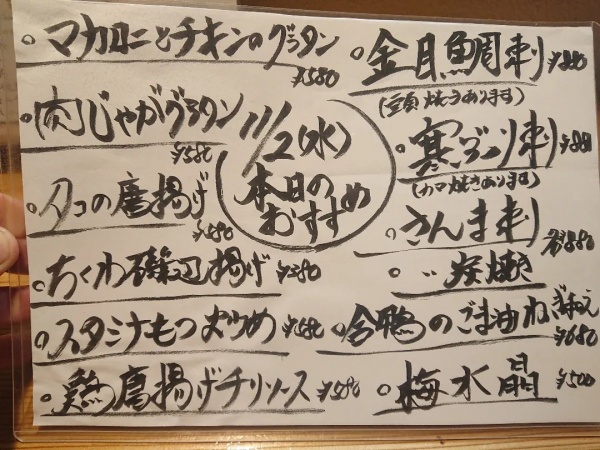 マカロニとチキンのグラタン
¥580
肉じゃがグラタン
¥580
タコの唐揚げ
¥580
ちくわ磯辺揚げ ¥380
スタミナもつ炒め ¥580
鶏唐揚げチリソース ¥580
11/2(水)
本日の
おすすめ
金目鯛刺 ¥880
(兜焼きあります)
寒ぶり刺 ¥880
(カマ焼きあります)
さんま刺
各¥880
〃 炭焼き
合鴨のごま油ねぎ和え
¥680
梅水晶 ¥500